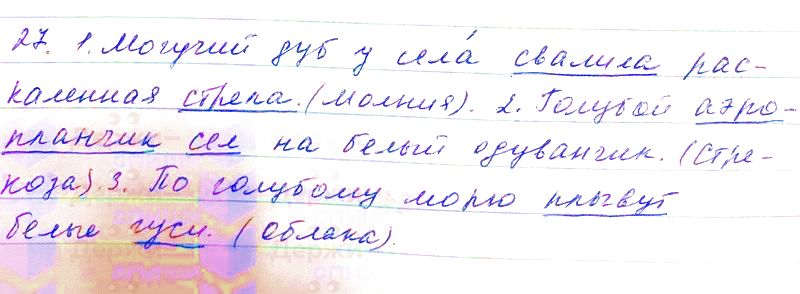 27. 1. Могучий дуб у села́ свалила рас-
каленная стрела. (Молния). 2. Голубой аэро-
планчик сел на белый одуванчик. (Стре-
коза). 3. По голубому морю плывут
белые гуси. (Облака).